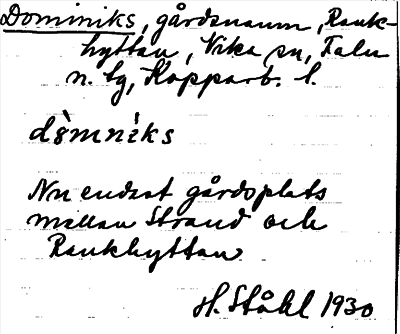 Dominiks, gårdsnamn, Rank-
hyttan, Vika sn, Falu
n. tg, Kopparb. l.
dò̀mnìks
Nu endast gårdsplats
mellan Strand och
Rankhyttan
H. Ståhl 1930